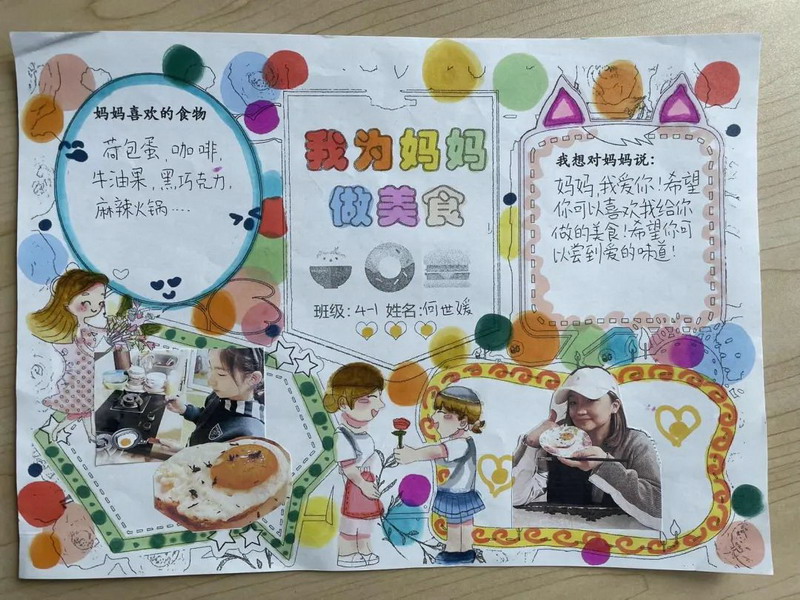 妈妈喜欢的食物
荷包蛋,咖啡,
牛油果,黑巧克力,
麻辣火锅....
我为妈妈
做美食
班级:4-1 姓名:何世媛
我想对妈妈说:
妈妈,我爱你!希望
你可以喜欢我给你
做的美食!希望你可
以尝到爱的味道!